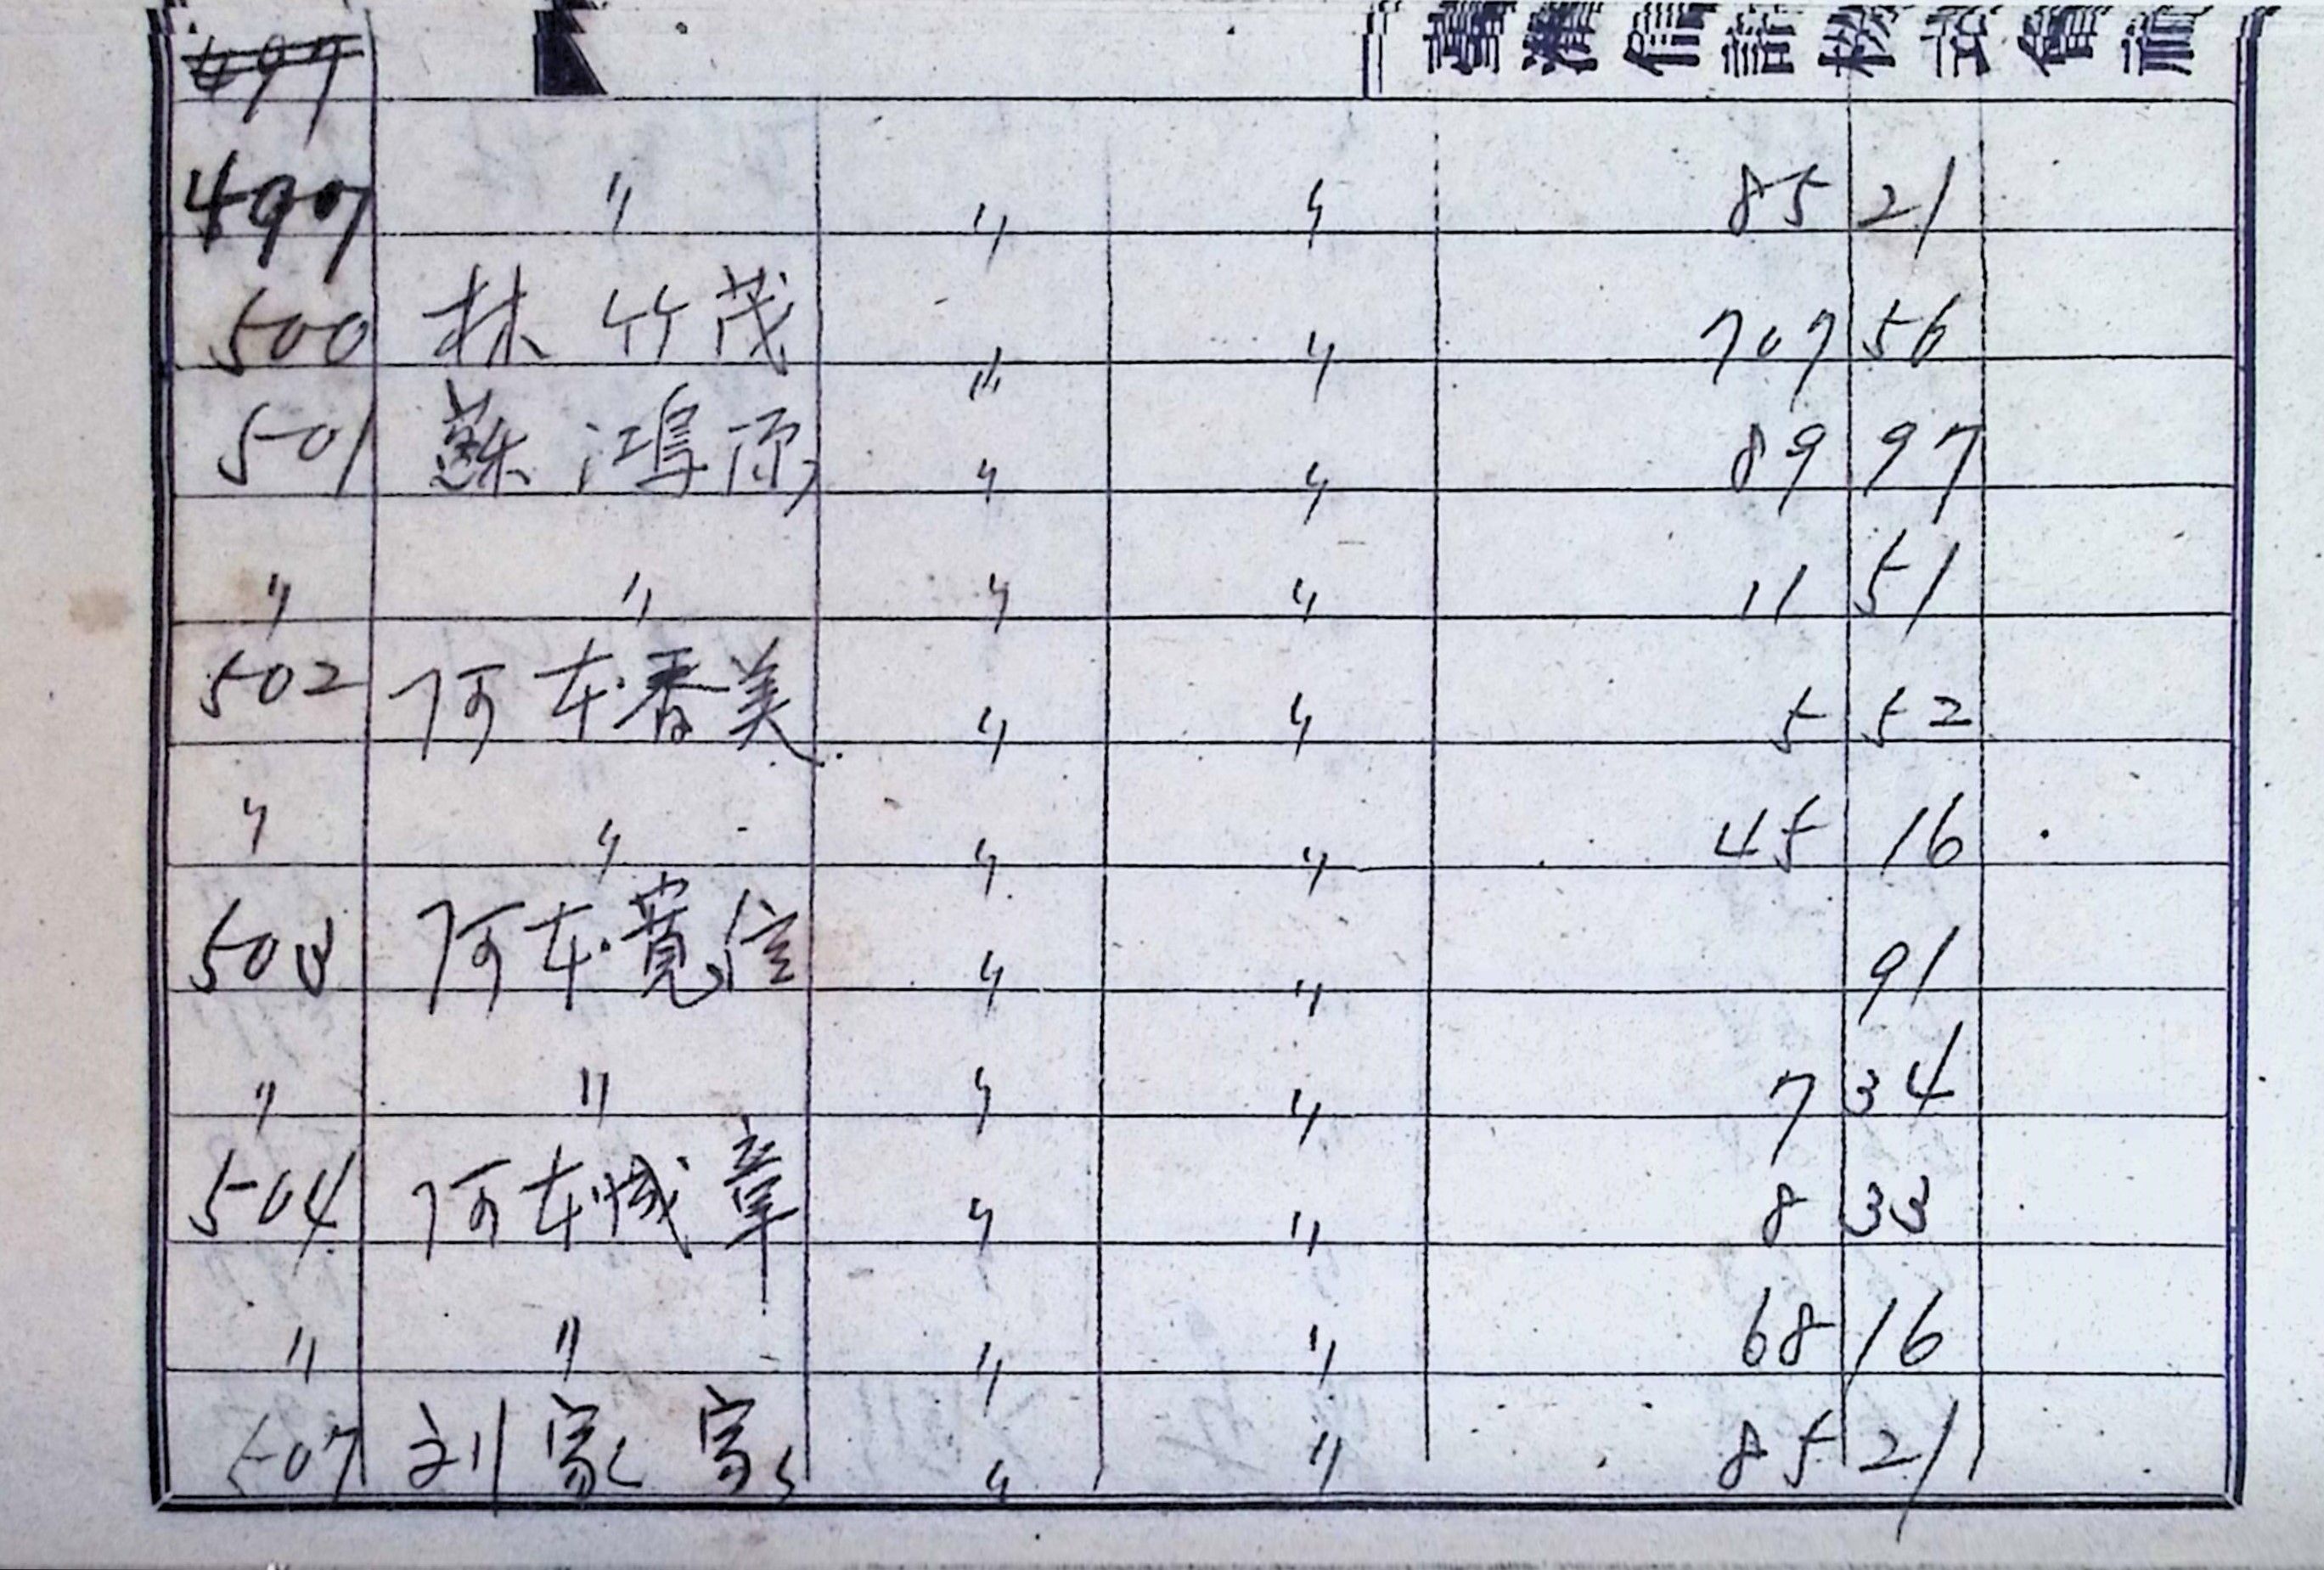 497
497 〃 〃 〃 85 21
500 林竹茂 〃 〃 707 56
501 蘇鴻源 〃 〃 89 97
〃 〃 〃 〃 11 51
502 河本香美 〃 〃 5 52
〃 〃 〃 〃 45 16
503 河本寛信 〃 〃 91
〃 〃 〃 〃 7 34
504 河本 章 〃 〃 8 33
〃 〃 〃 〃 68 16
507 刘家家 〃 〃 85 21